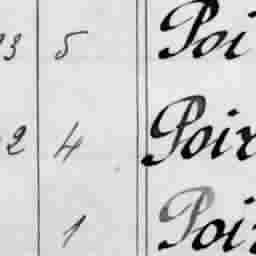 3 5 Poi
2 4 Poir
1 Poir